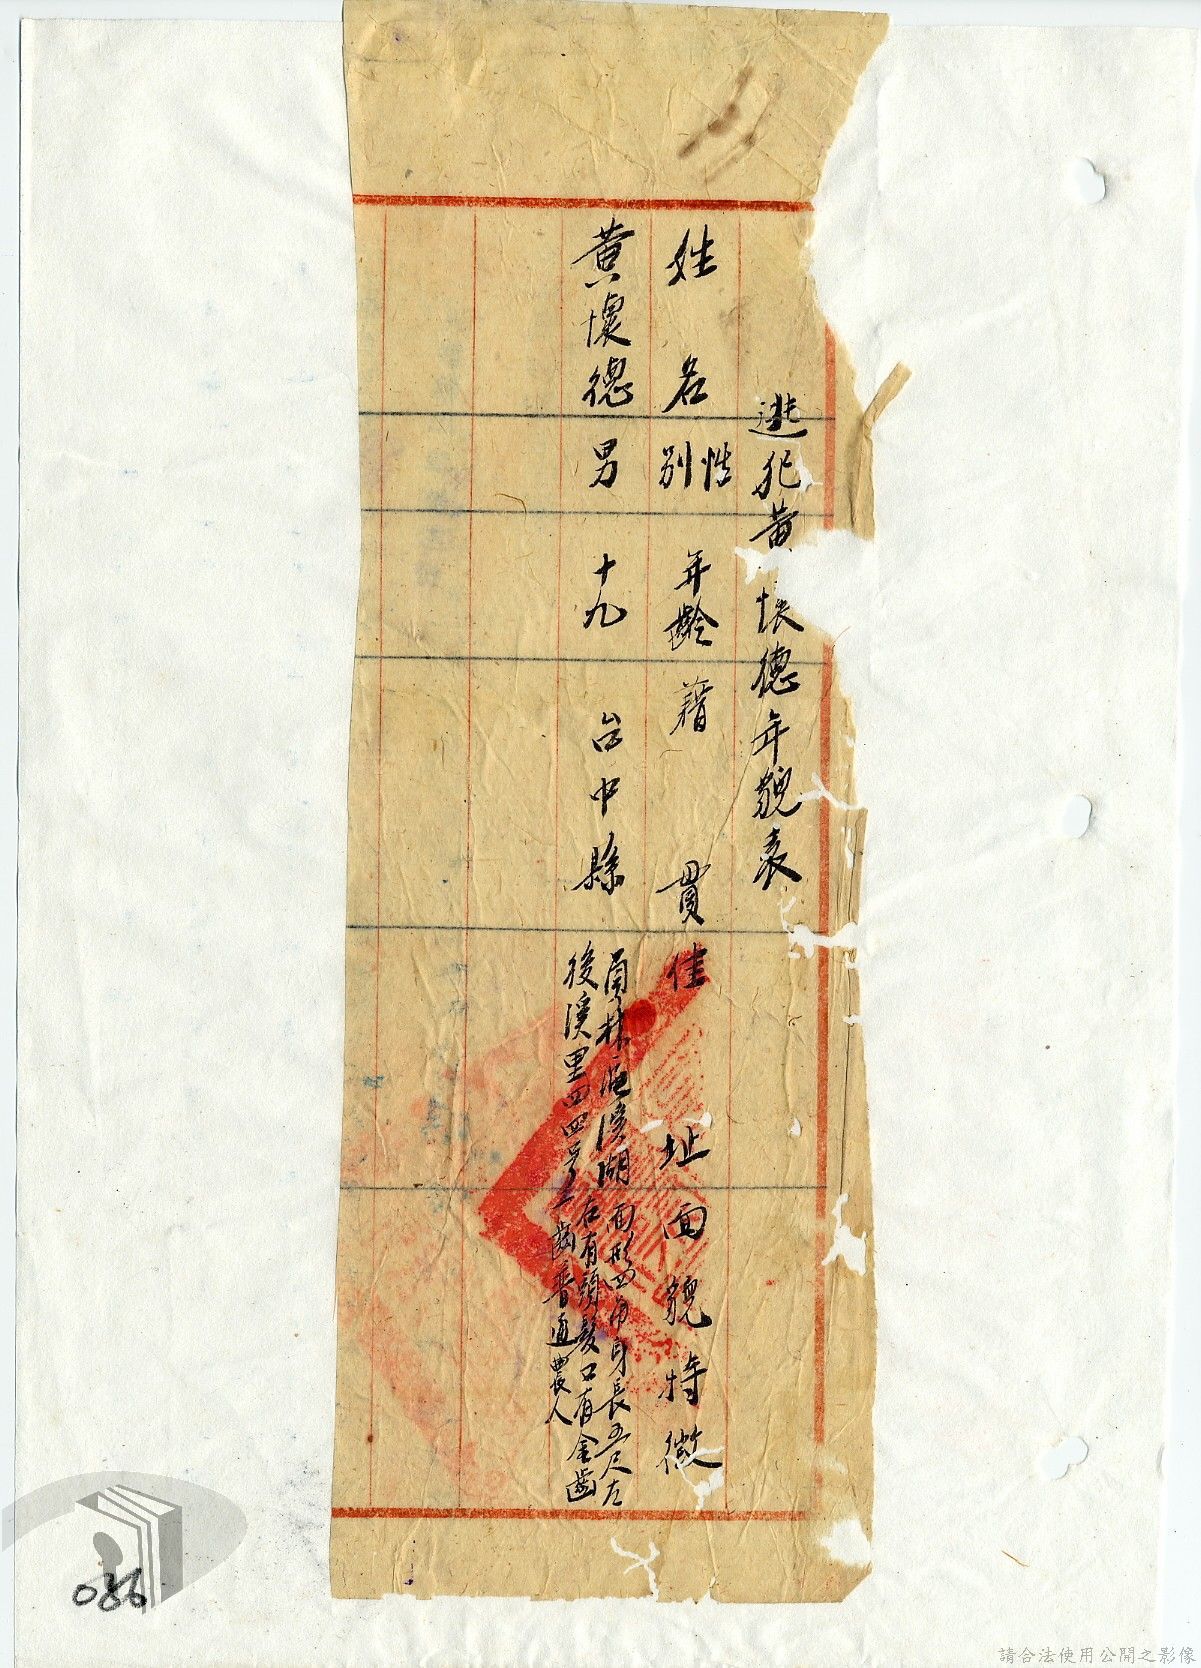 逃犯黄懷德年貌表
姓名 性別 年齡 藉貫 住址 面貌特徵
黄懷德 男 十九 台中縣
員林區溪湖
後溪里四四号
面形四角身長五尺左
右有頭髮口有金齒
一齒普通農人
086
請合法使用公開之影像